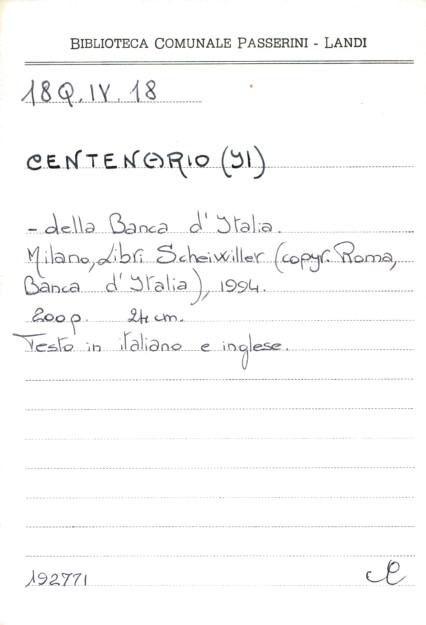 BIBLIOTECA COMUNALE PASSERINI - LANDI
18Q.IV.18
CENTENARIO (Il)
- della Banca d'Italia.
Milano, Libri Scheiwiller (copyr. Roma,
Banca d'Italia), 1994.
200 p. 24 cm.
Testo in italiano e inglese.
192771